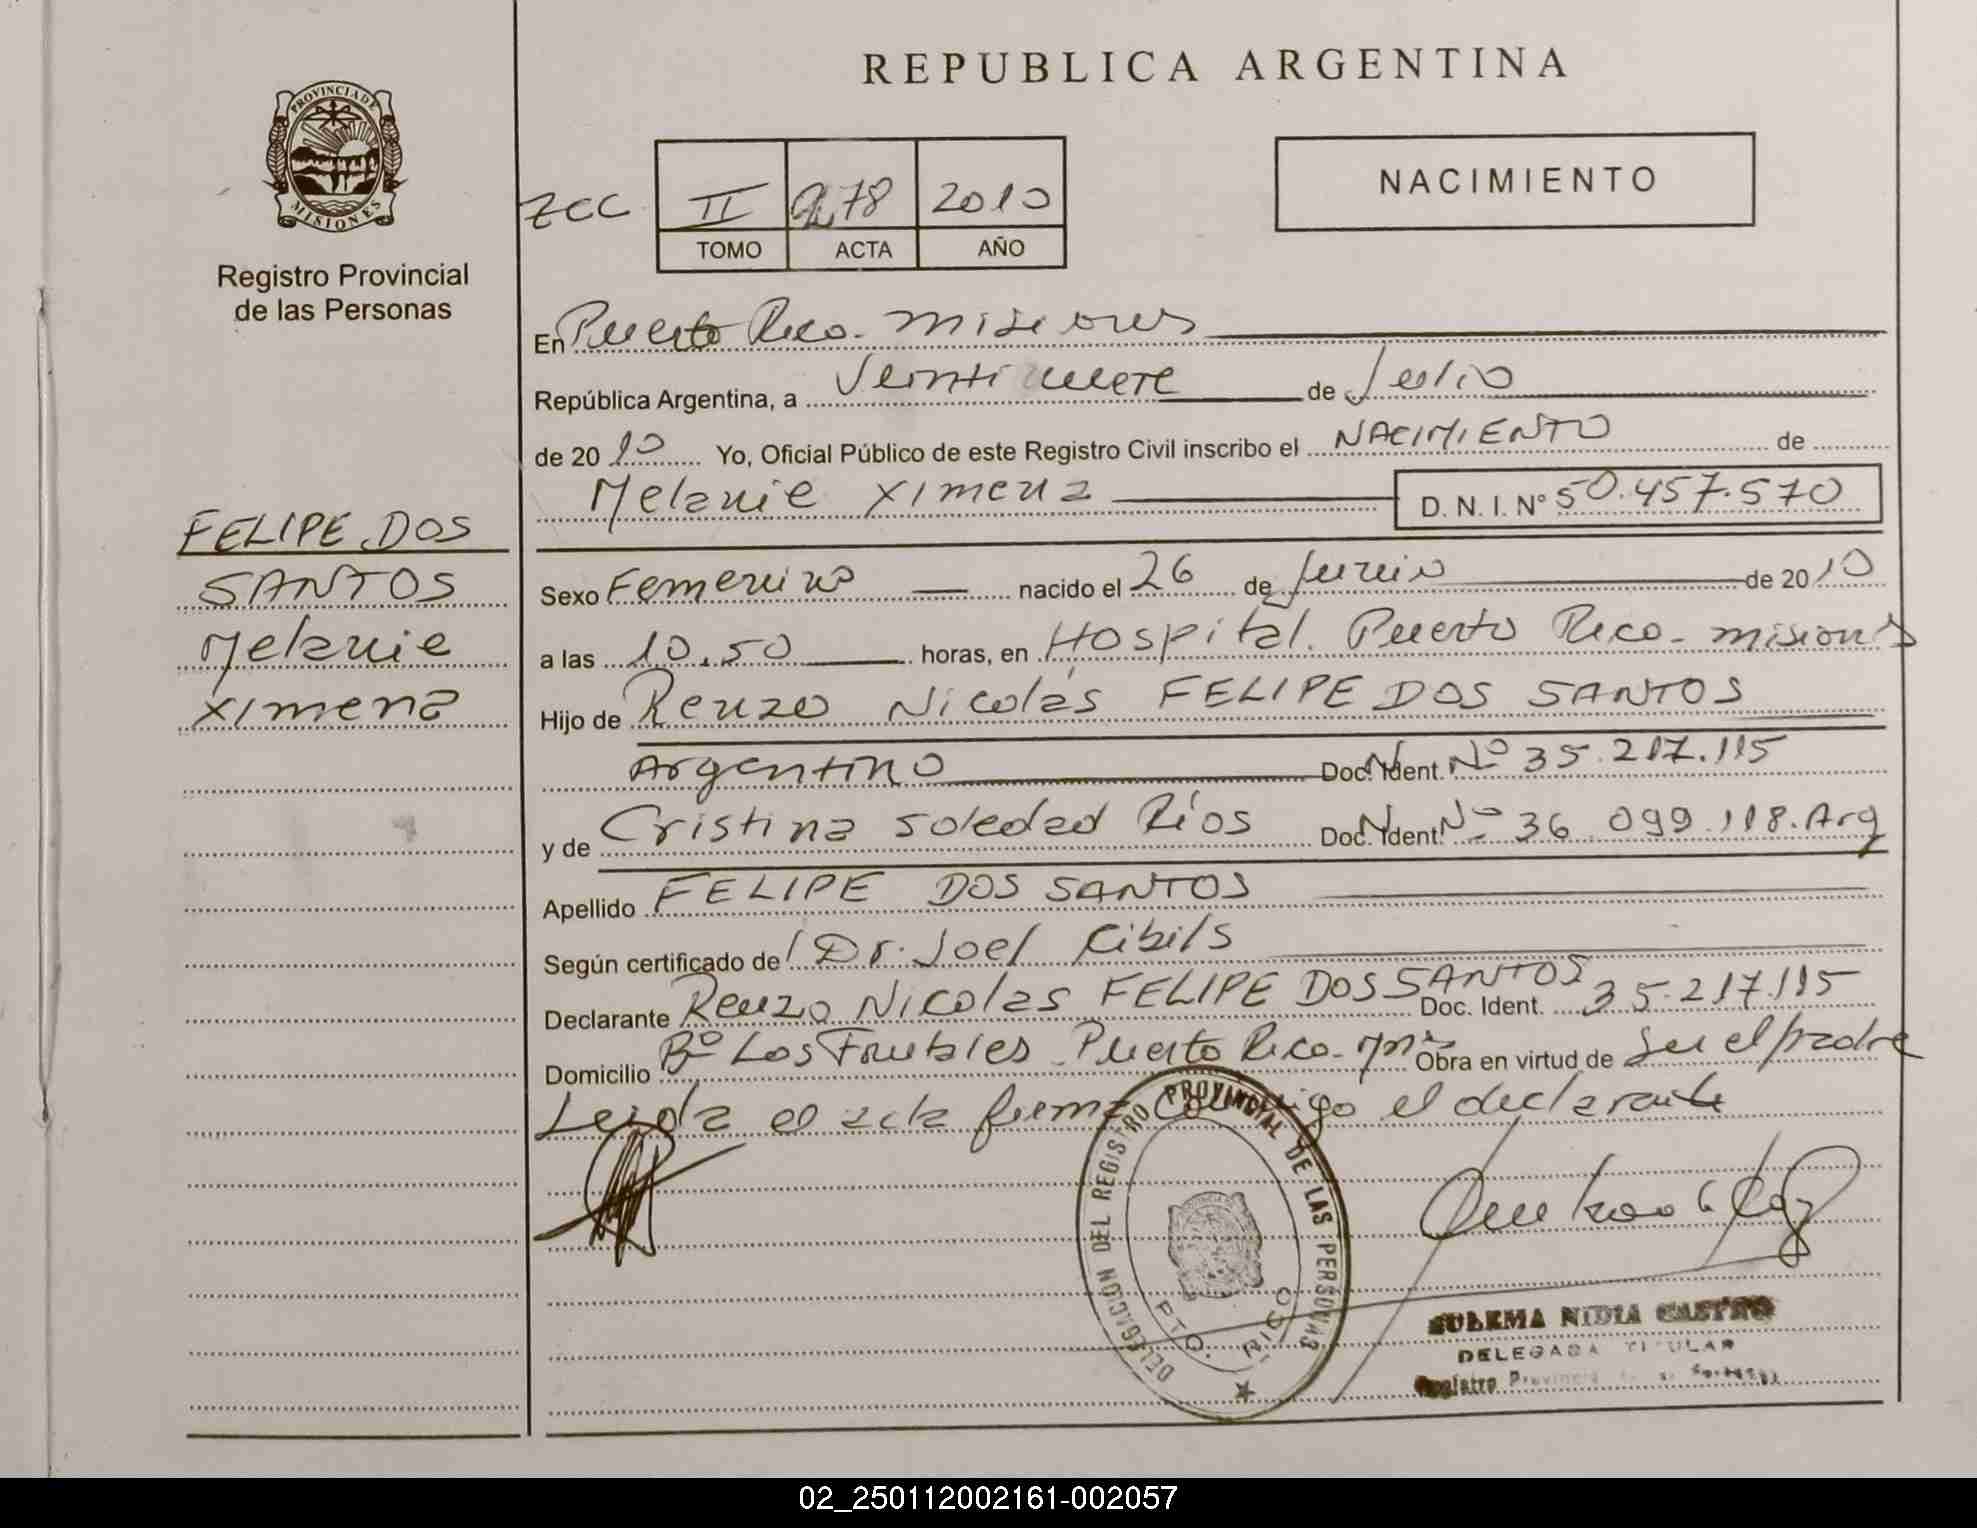 REPUBLICA ARGENTINA
PROVINCIA DE MISIONES
Registro Provincial
de las Personas
zcc II 278 2010
TOMO ACTA AÑO
NACIMIENTO
En Puerto Rico - misiones
República Argentina, a Veinti de Julio
de 2010 Yo, Oficial Público de este Registro Civil inscribo el NACIMIENTO de
Melanie Ximena D. N. I. Nº 50.457.570
FELIPE DOS
SANTOS
Melanie
Ximena
Sexo Femenino nacido el 26 de Junio de 2010
a las 10.50 horas, en Hospital. Puerto Rico - misiones
Hijo de Renzo Nicolás FELIPE DOS SANTOS
Argentino Doc. Ident. Nº 35.217.115
y de Cristina Soledad Ríos Doc. Ident. Nº 36.099.118. Arg
Apellido FELIPE DOS SANTOS
Según certificado de Dr. Joel Cibils
Declarante Renzo Nicolas FELIPE DOS SANTOS Doc. Ident. 35.217.115
Domicilio Bº Los Frutales Puerto Rico - Mns Obra en virtud de Ser el padre
Leida el acta firma conmigo el declarante
DELEGACION DEL REGISTRO PROVINCIAL DE LAS PERSONAS
PTO. RICO
SULEMA NIDIA CASTRO
DELEGADA TITULAR
Registro Provincial
02_250112002161-002057